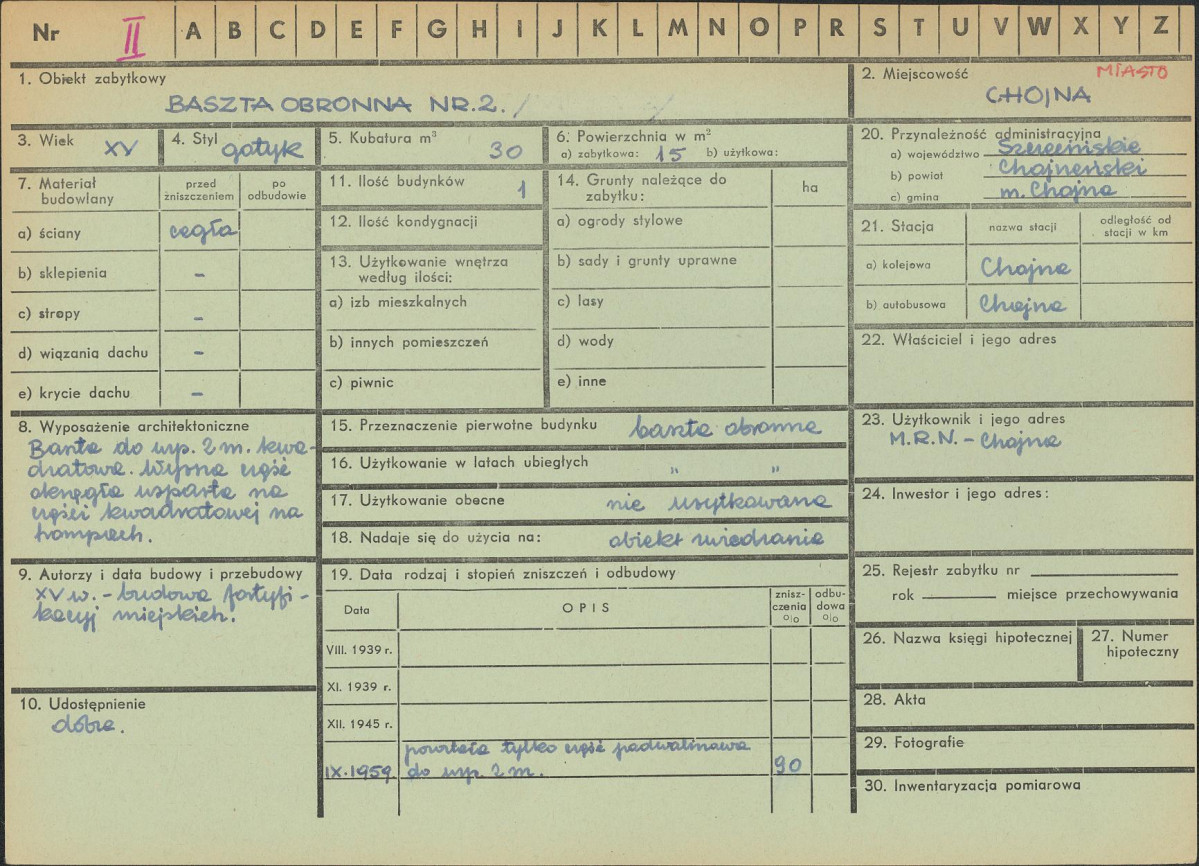 Nr II A B C D E F G H I J K L M N O P R S T U V W X Y Z
1. Obiekt zabytkowy
BASZTA OBRONNA NR.2.
2. Miejscowość MIASTO
CHOJNA
3. Wiek XV
4. Styl gotyk
5. Kubatura m³
30
6. Powierzchnia w m²
a) zabytkowa: 15 b) użytkowa:
7. Materiał budowlany
przed zniszczeniem
po odbudowie
a) ściany cegła
b) sklepienia -
c) stropy -
d) wiązania dachu -
e) krycie dachu -
8. Wyposażenie architektoniczne
Baszta do wys. 2 m. kwa-
dratowa. Wyższa część
okrągła wsparta na
części kwadratowej na
trompach.
9. Autorzy i data budowy i przebudowy
XV w. - budowa fortyfi-
kacyj miejskich.
10. Udostępnienie
dobre.
11. Ilość budynków
1
12. Ilość kondygnacji
13. Użytkowanie wnętrza
według ilości:
a) izb mieszkalnych
b) innych pomieszczeń
c) piwnic
14. Grunty należące do
zabytku:
ha
a) ogrody stylowe
b) sady i grunty uprawne
c) lasy
d) wody
e) inne
15. Przeznaczenie pierwotne budynku baszta obronna
16. Użytkowanie w latach ubiegłych " "
17. Użytkowanie obecne nie użytkowana
18. Nadaje się do użycia na: obiekt zwiedzania
19. Data rodzaj i stopień zniszczeń i odbudowy
Data
OPIS
znisz-
czenia
o|o
odbu-
dowa
o|o
VIII. 1939 r.
XI. 1939 r.
XII. 1945 r.
pozostała tylko część podwalinowa
IX.1959 do wys. 2 m. 90
20. Przynależność administracyjna
a) województwo Szczecińskie
b) powiat Chojneński
c) gmina m. Chojna
21. Stacja
nazwa stacji
odległość od
stacji w km
a) kolejowa Chojna
b) autobusowa Chojna
22. Właściciel i jego adres
23. Użytkownik i jego adres
M.R.N. - Chojna
24. Inwestor i jego adres:
25. Rejestr zabytku nr
rok miejsce przechowywania
26. Nazwa księgi hipotecznej
27. Numer
hipoteczny
28. Akta
29. Fotografie
30. Inwentaryzacja pomiarowa